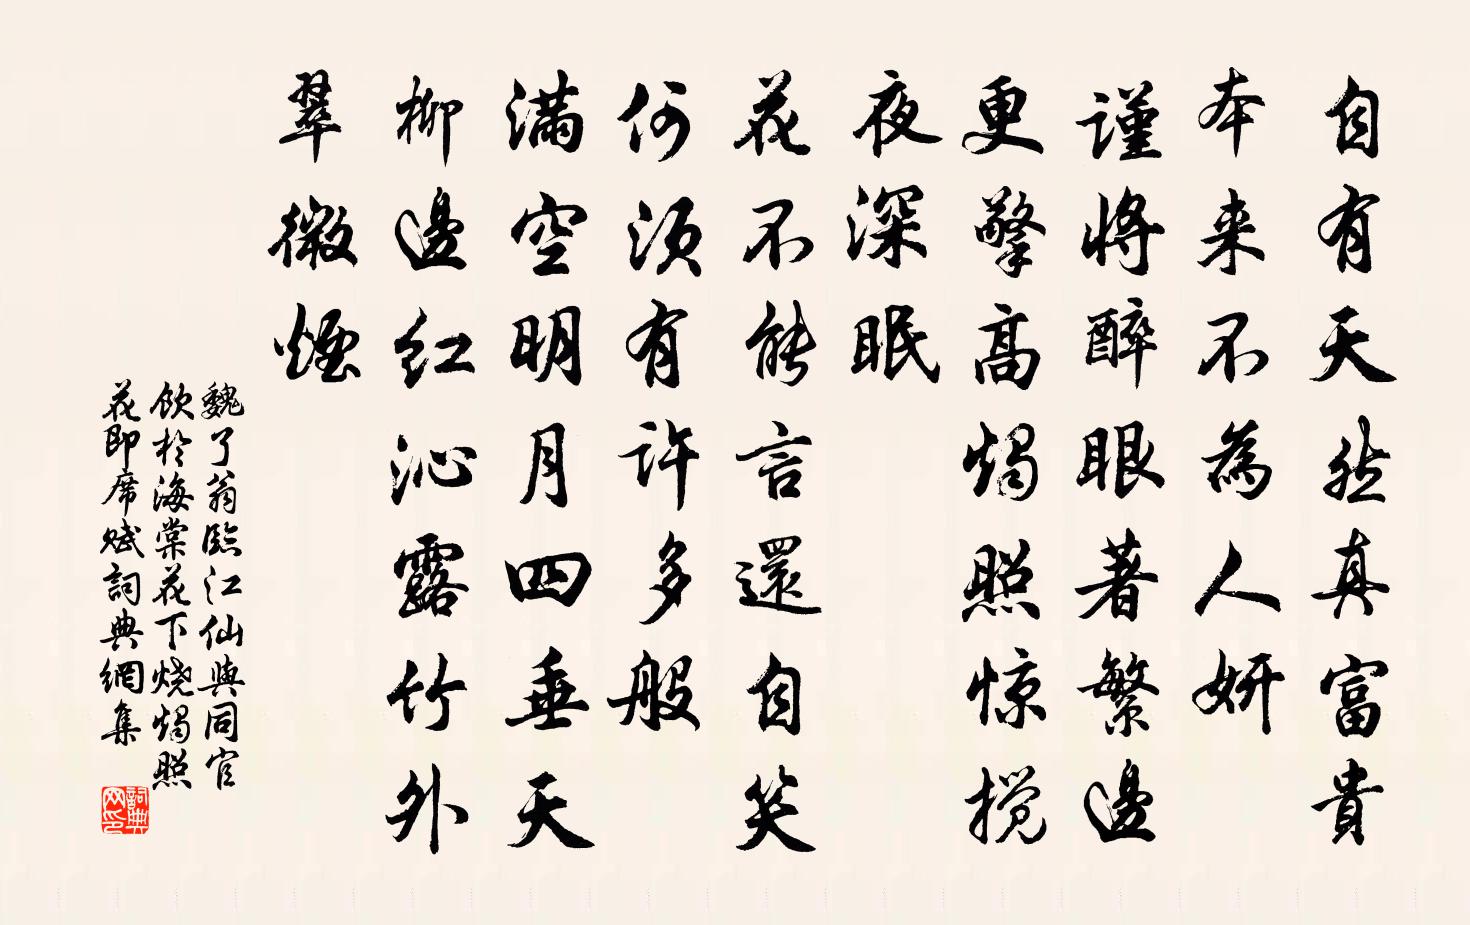 自有天然真富貴
本来不為人妍
謹將醉眼著繁邊
更擎高燭照惊搅
夜深眠
花不能言還自笑
何須有許多般
满空明月四垂天
柳邊紅沁露竹外
翠微煙
魏了翁臨江仙與同官
飲於海棠花下燒燭照
花即席赋詞典網集
詞典
网印